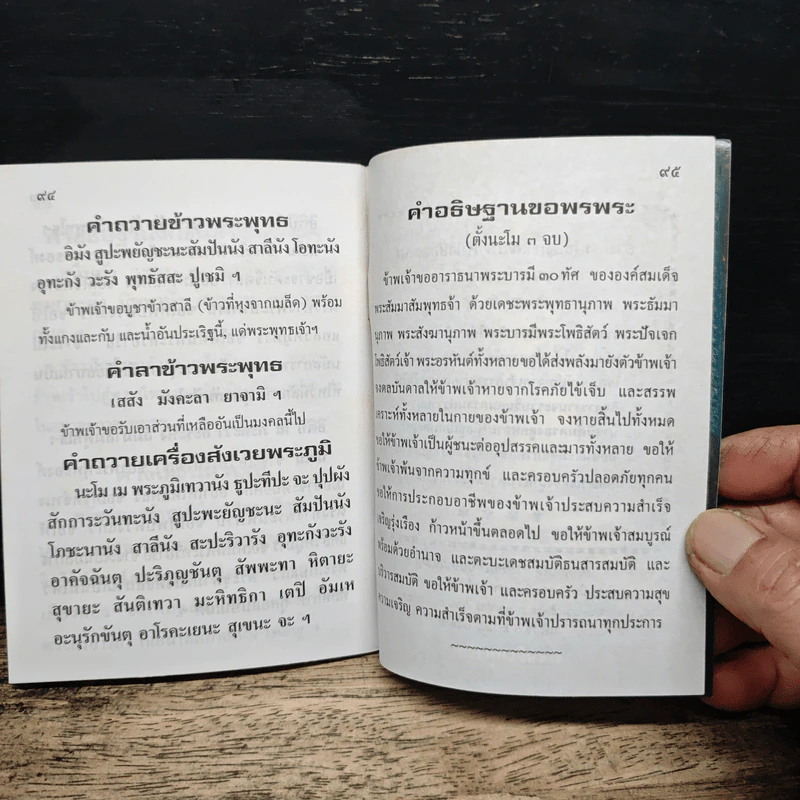 ๙๔
คำถวายข้าวพระพุทธ
อิมัง สูปะพยัญชะนะสัมปันนัง สาลีนัง โอทะนัง
อุทะกัง วะรัง พุทธัสสะ ปูเชมิ ฯ
ข้าพเจ้าขอบูชาข้าวสาลี (ข้าวที่หุงจากเมล็ด) พร้อม
ทั้งแกงและกับ และน้ำอันประเริฐนี้, แด่พระพุทธเจ้าฯ
คำลาข้าวพระพุทธ
เสสัง มังคะลา ยาจามิ ฯ
ข้าพเจ้าขอรับเอาส่วนที่เหลืออันเป็นมงคลนี้ไป
คำถวายเครื่องสังเวยพระภูมิ
นะโม เม พระภูมิเทวานัง ธูปะทีปะ จะ ปุปผัง
สักการะวันทะนัง สูปะพะยัญชะนะ สัมปันนัง
โภชะนานัง สาลีนัง สะปะริวารัง อุทะกังวะรัง
อาคัจฉันตุ ปะริภุญชันตุ สัพพะทา หิตายะ
สุขายะ สันติเทวา มะหิทธิกา เตปิ อัมเห
อะนุรักขันตุ อาโรคะเยนะ สุเขนะ จะ ฯ
๙๕
คำอธิษฐานขอพรพระ
(ตั้งนะโม ๓ จบ)
ข้าพเจ้าขออาราธนาพระบารมี ๓๐ ทัศ ขององค์สมเด็จ
พระสัมมาสัมพุทธจ้า ด้วยเดชะพระพุทธานุภาพ พระธัมมา
นุภาพ พระสังฆานุภาพ พระบารมีพระโพธิสัตว์ พระปัจเจก
โพธิสัตว์เจ้า พระอรหันต์ทั้งหลายขอได้ส่งพลังมายังตัวข้าพเจ้า
จงดลบันดาลให้ข้าพเจ้าหายจากโรคภัยไข้เจ็บ และสรรพ
เคราะห์ทั้งหลายในกายของข้าพเจ้า จงหายสิ้นไปทั้งหมด
ขอให้ข้าพเจ้าเป็นผู้ชนะต่ออุปสรรคและมารทั้งหลาย ขอให้
ข้าพเจ้าพ้นจากความทุกข์ และครอบครัวปลอดภัยทุกคน
ขอให้การประกอบอาชีพของข้าพเจ้าประสบความสำเร็จ
เจริญรุ่งเรือง ก้าวหน้าขึ้นตลอดไป ขอให้ข้าพเจ้าสมบูรณ์
พร้อมด้วยอำนาจ และตะบะเดชสมบัติธนสารสมบัติ และ
บริวารสมบัติ ขอให้ข้าพเจ้า และครอบครัว ประสบความสุข
ความเจริญ ความสำเร็จตามที่ข้าพเจ้าปรารถนาทุกประการ